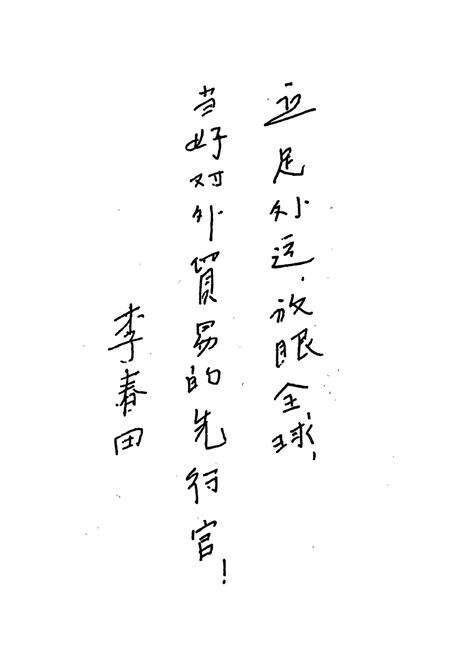 立足外运，放眼全球，
当好对外貿易的先行官！
李春田